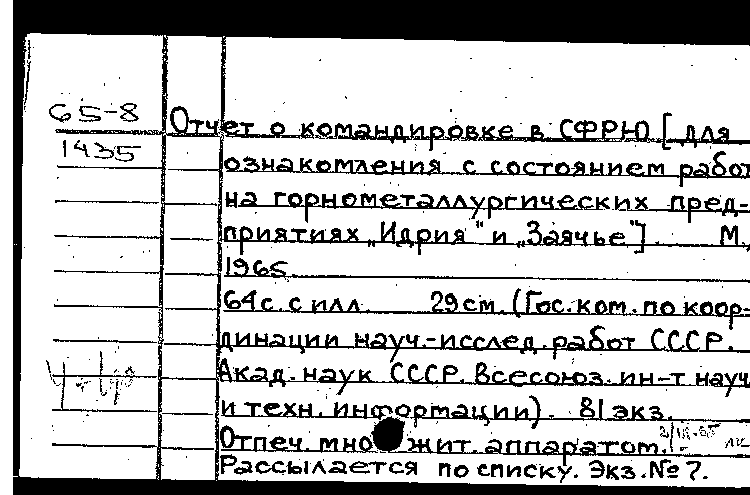 65-8
1435
Отчет о командировке в СФРЮ [для
ознакомления с состоянием работ
на горнометаллургических пред-
приятиях „Идрия" и „Заячье"]. М.,
1965.
64с. с илл. 29см. (Гос. ком. по коор-
динации науч.-исслед. работ СССР.
Акад. наук СССР. Всесоюз. ин-т науч.
и техн. информации). 81 экз.
Отпеч. множит. аппаратом.
Рассылается по списку. Экз. № 7.